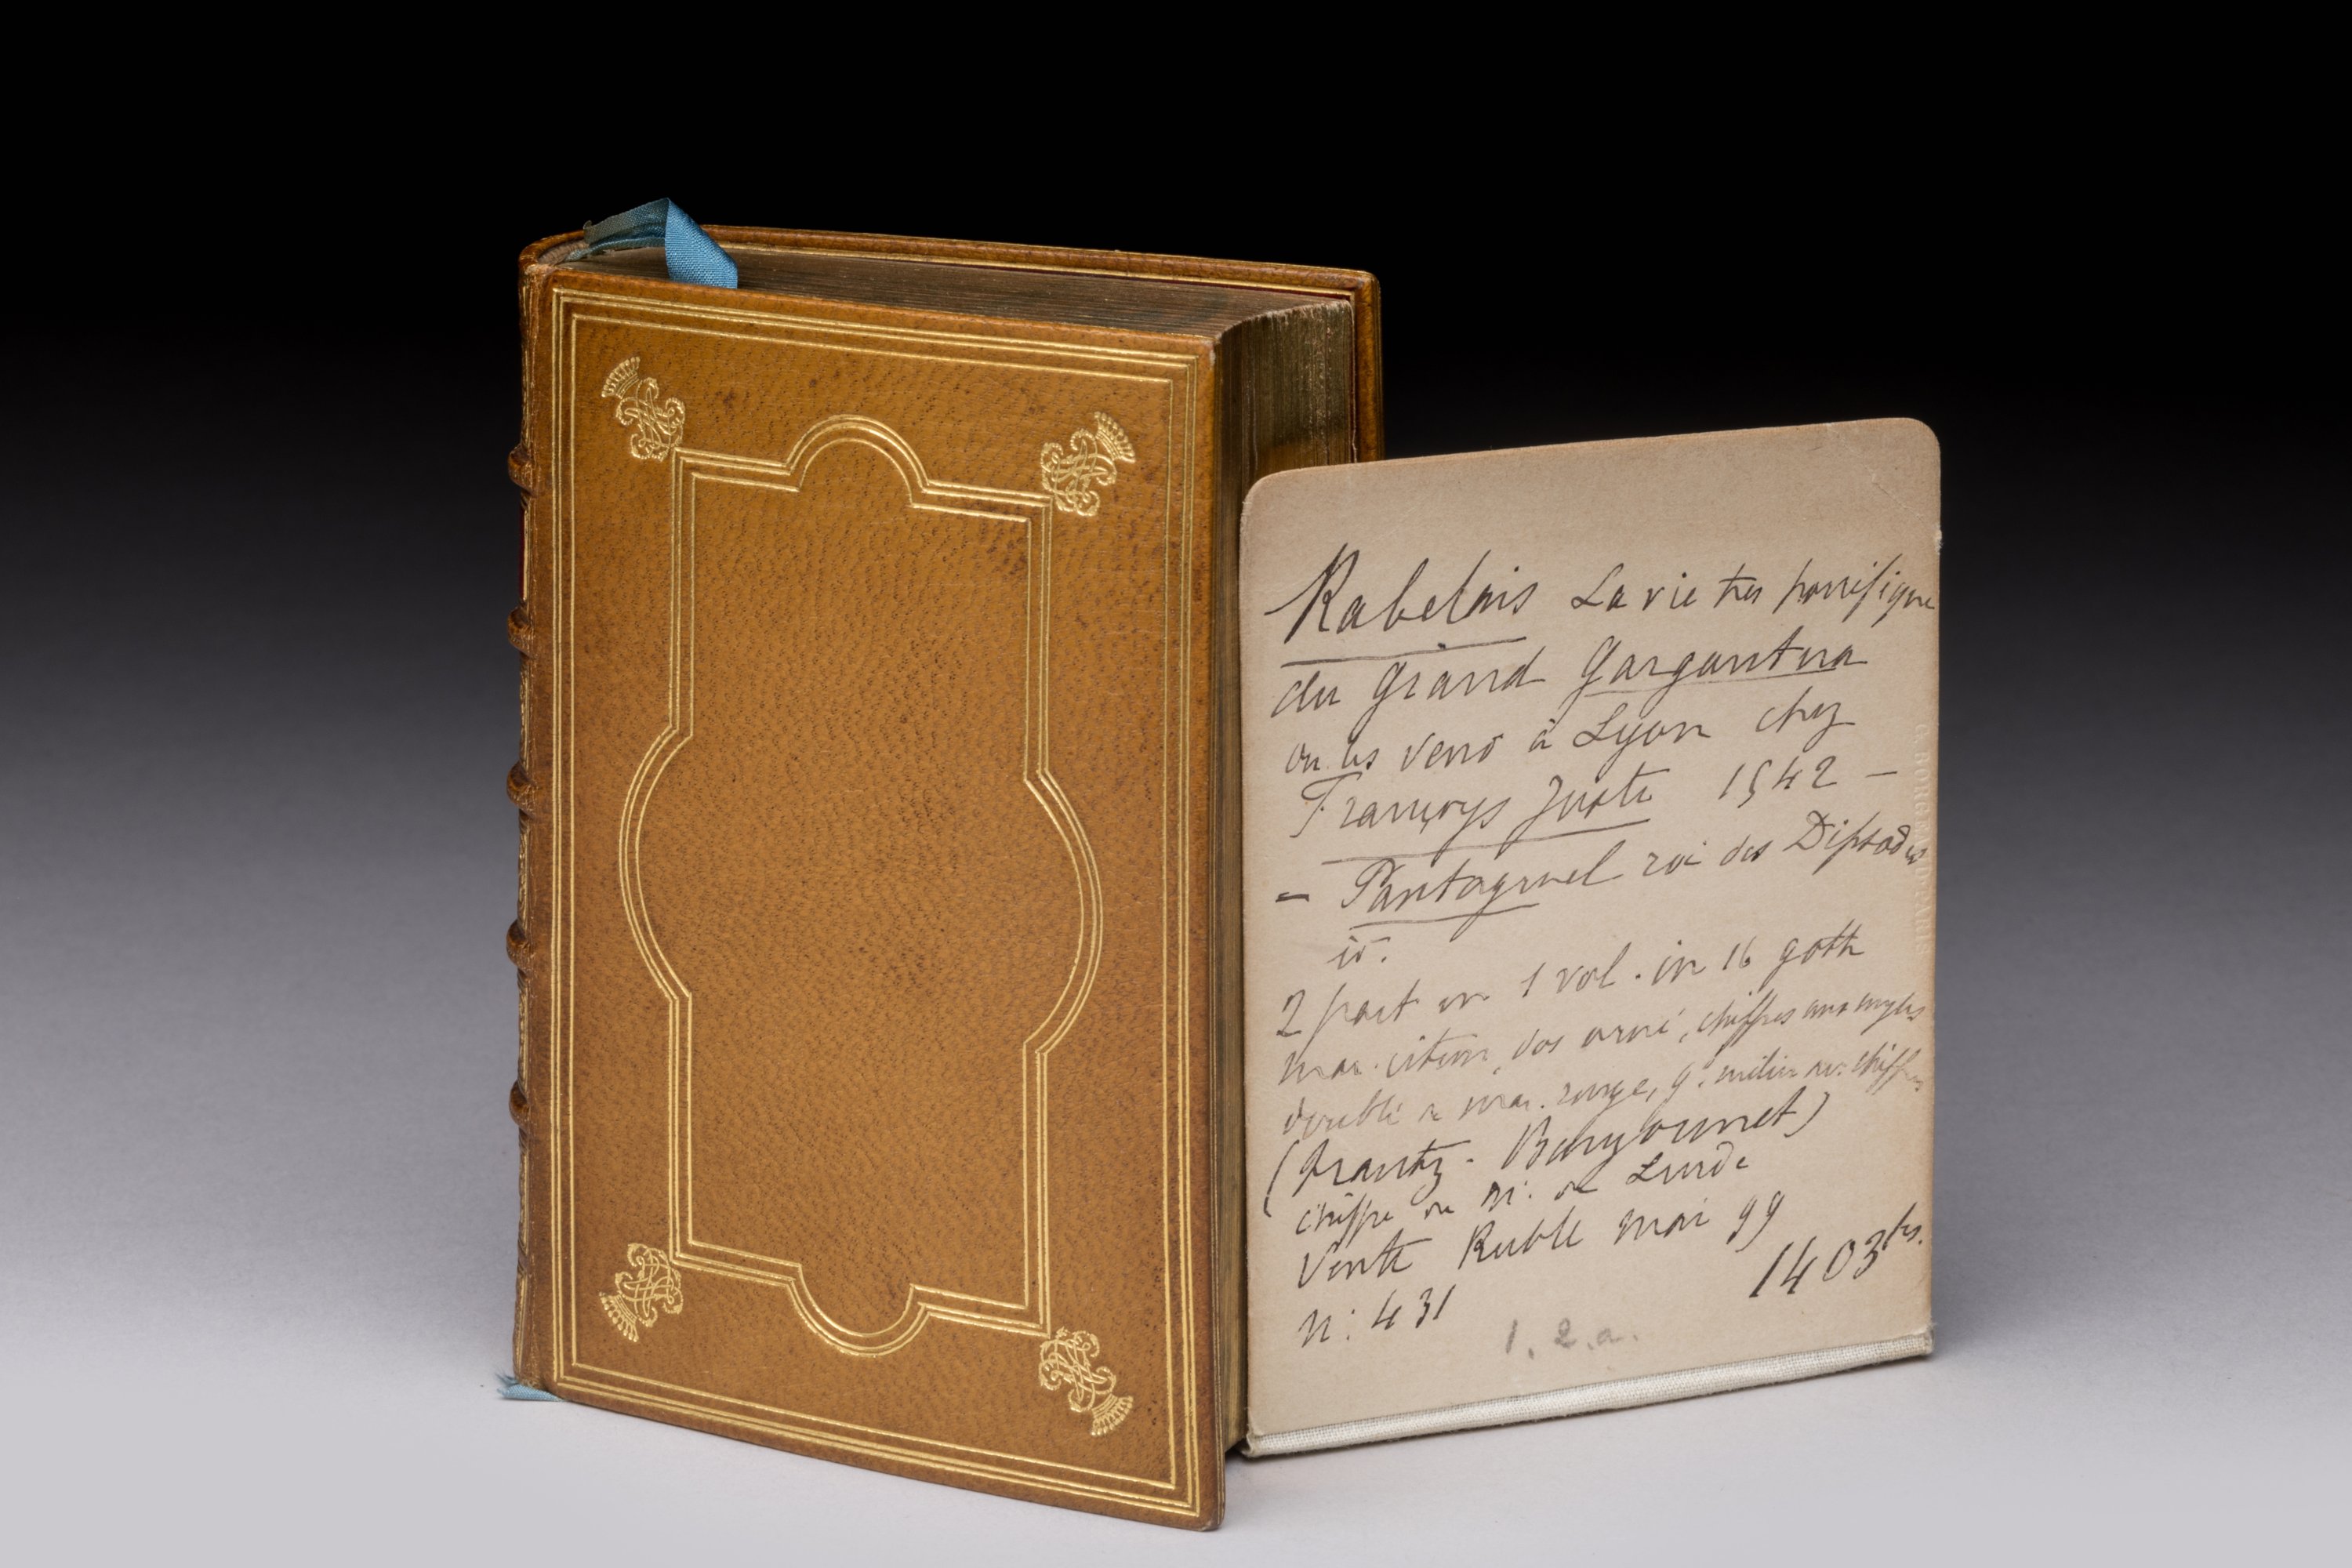 Rabelais La vie tres horrifique
du grand Gargantua
on les vend à Lyon chez
Françoys Juste 1542 —
– Pantagruel roi des Dipsodes
id.
2 part en 1 vol. in 16 goth
mar. citron, dos orné, chiffres aux angles
doublé de mar. rouge, g. milieu av. chiffres
(Trautz-Bauzonnet)
chiffre de M. de Lurde
Vente Ruble mai 99
n: 431
1403 frs.
1. 2. a.